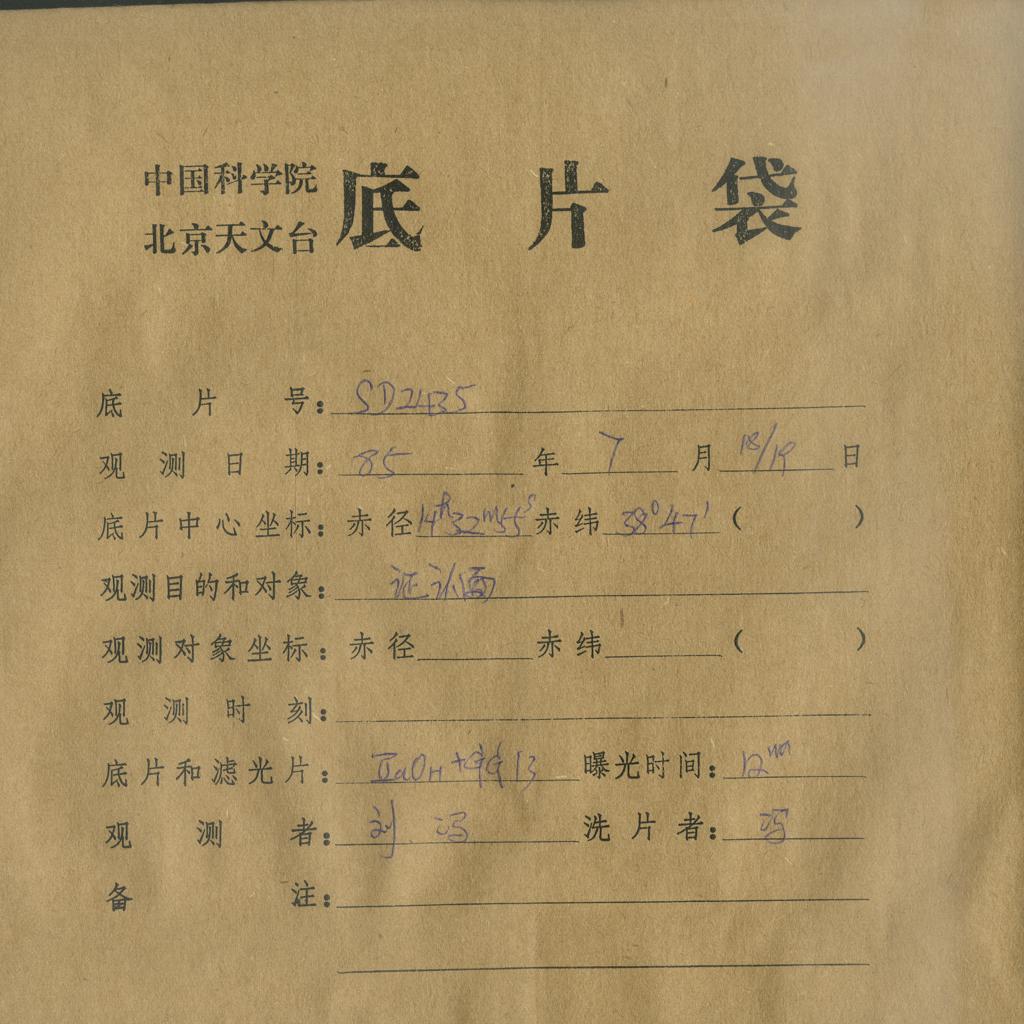 中国科学院
北京天文台
底片袋
底片号：SD2435
观测日期：85年7月18/19日
底片中心坐标：赤径14h32m55s赤纬38°47'（ ）
观测目的和对象：证认
观测对象坐标：赤径 赤纬 （ ）
观测时刻：
底片和滤光片：IIaOH+ 13 曝光时间：12m
观测者：刘.冯 洗片者：冯
备注：